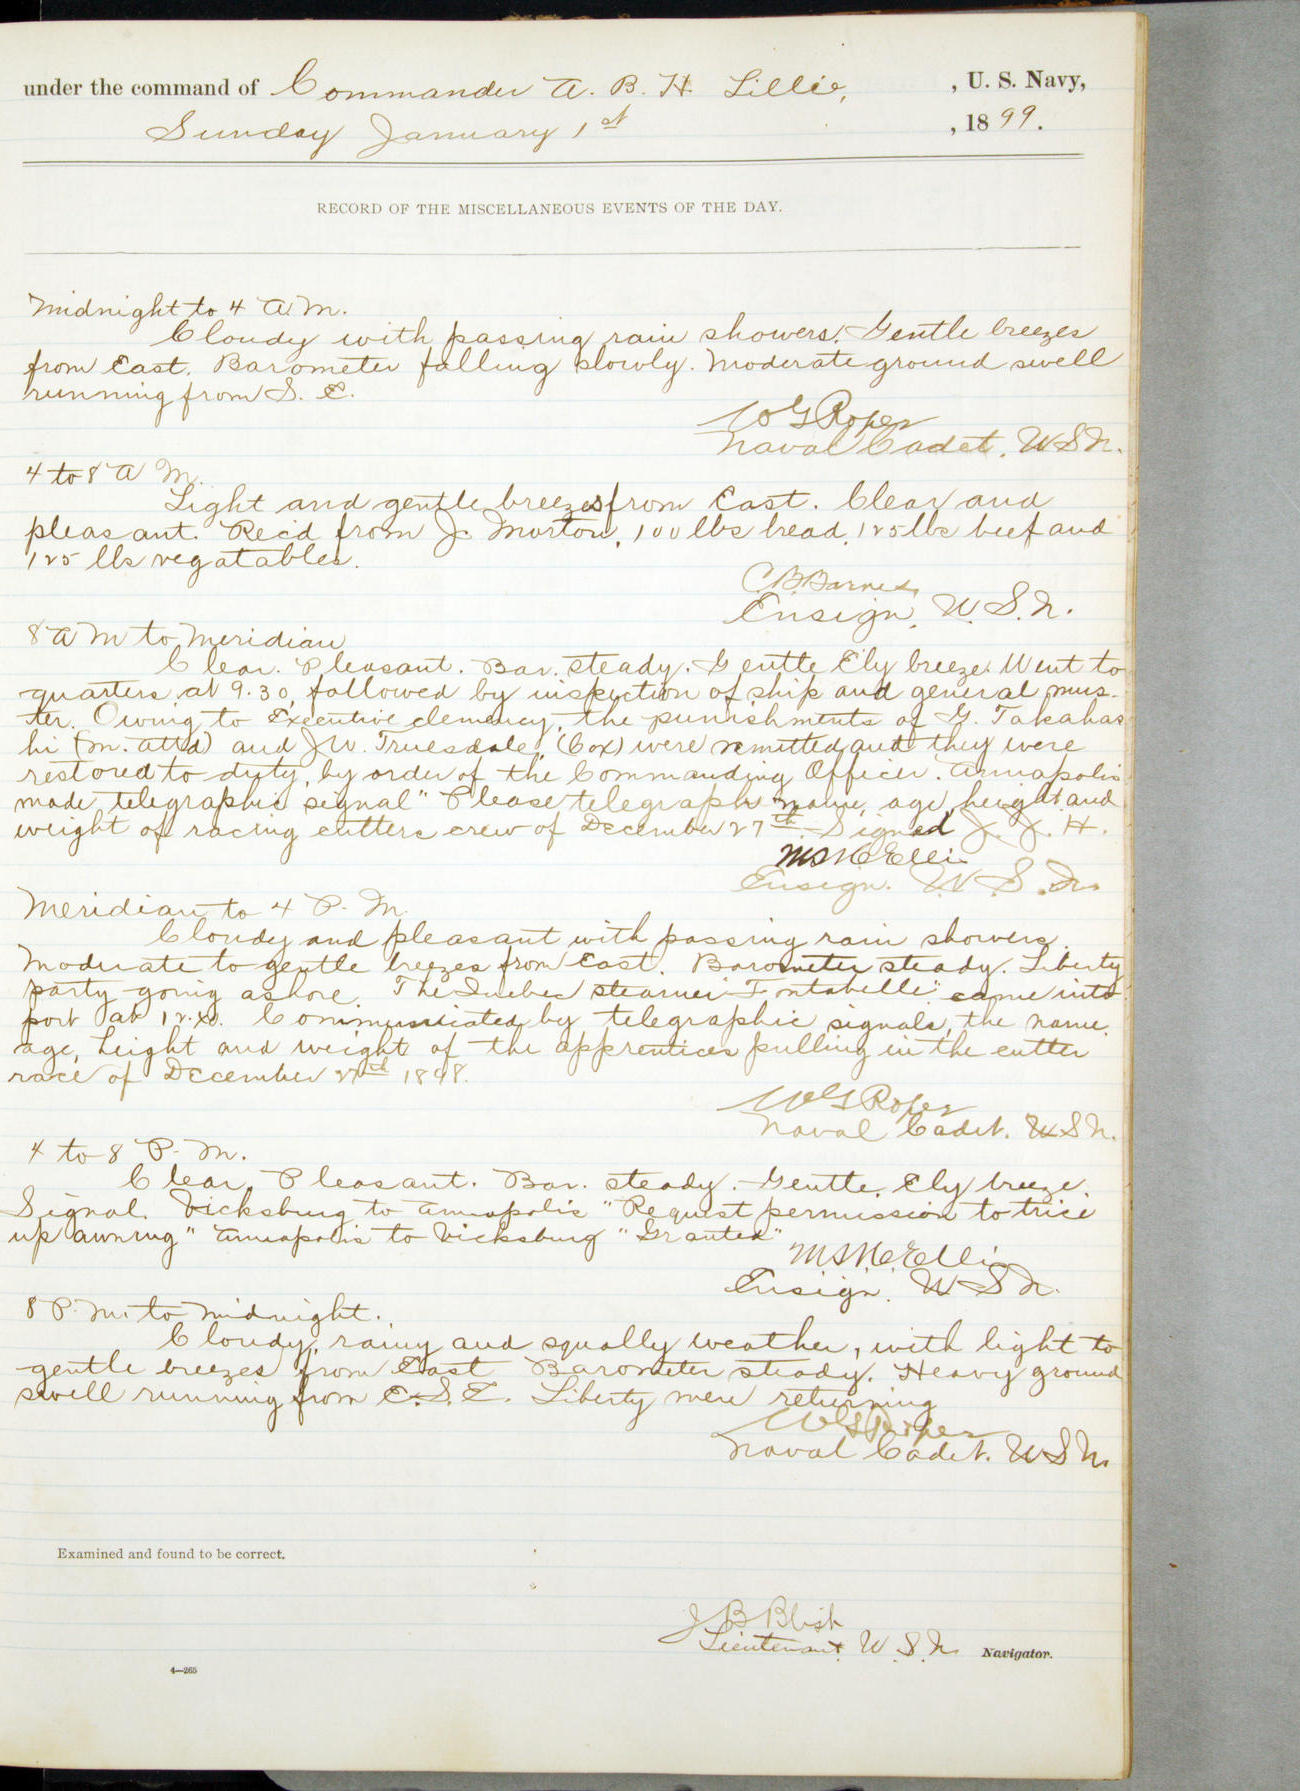 under the command of Commander A. B. H. Lillie, , U. S. Navy,
Sunday January 1st , 1899.
RECORD OF THE MISCELLANEOUS EVENTS OF THE DAY.
Midnight to 4 A.M.
Cloudy with passing rain showers. Gentle breezes
from East. Barometer falling slowly. Moderate ground swell
running from S. E.
W G Roper
Naval Cadet. U S N.
4 to 8 A M.
Light and gentle breezes from East. Clear and
pleasant. Rec'd from J. Morton, 100 lbs bread, 125 lbs beef and
125 lbs vegatables.
C B Barnes
Ensign, U. S. N.
8 A M to Meridian
Clear. Pleasant. Bar. steady. Gentle E'ly breeze. Went to
quarters at 9.30, followed by inspection of ship and general mus-
ter. Owing to Executive clemency, the punishments of G. Takahas
hi (M. att'd) and J W. Truesdale, (Cox) were remitted and they were
restored to duty, by order of the Commanding Officer. Annapolis
made telegraphic signal "Please telegraph name, age, height and
weight of racing cutters crew of December 27th - Signed J. J. H.
M S McEllis
Ensign. U. S. N.
Meridian to 4 P. M.
Cloudy and pleasant with passing rain showers.
Moderate to gentle breezes from East. Barometer steady. Liberty
party going ashore. The Quebec steamer "Fontabelle" came into
port at 12.20. Communicated by telegraphic signals, the name,
age, height and weight of the apprentices pulling in the cutter
race of December 27th 1898.
W G Roper
Naval Cadet. U S N.
4 to 8 P. M.
Clear. Pleasant. Bar. steady. Gentle. E'ly breeze.
Signal. Vicksburg to Annapolis "Request permission to trice
up awning" Annapolis to Vicksburg "Granted"
M S McEllis
Ensign. U S N.
8 P. M. to Midnight.
Cloudy, rainy and squally weather, with light to
gentle breezes from East Barometer steady. Heavy ground
swell running from E. S. E. Liberty men returning
W G Roper
Naval Cadet. U S N.
Examined and found to be correct.
J B Blish
Lieutenant U. S. N. Navigator.
4—265